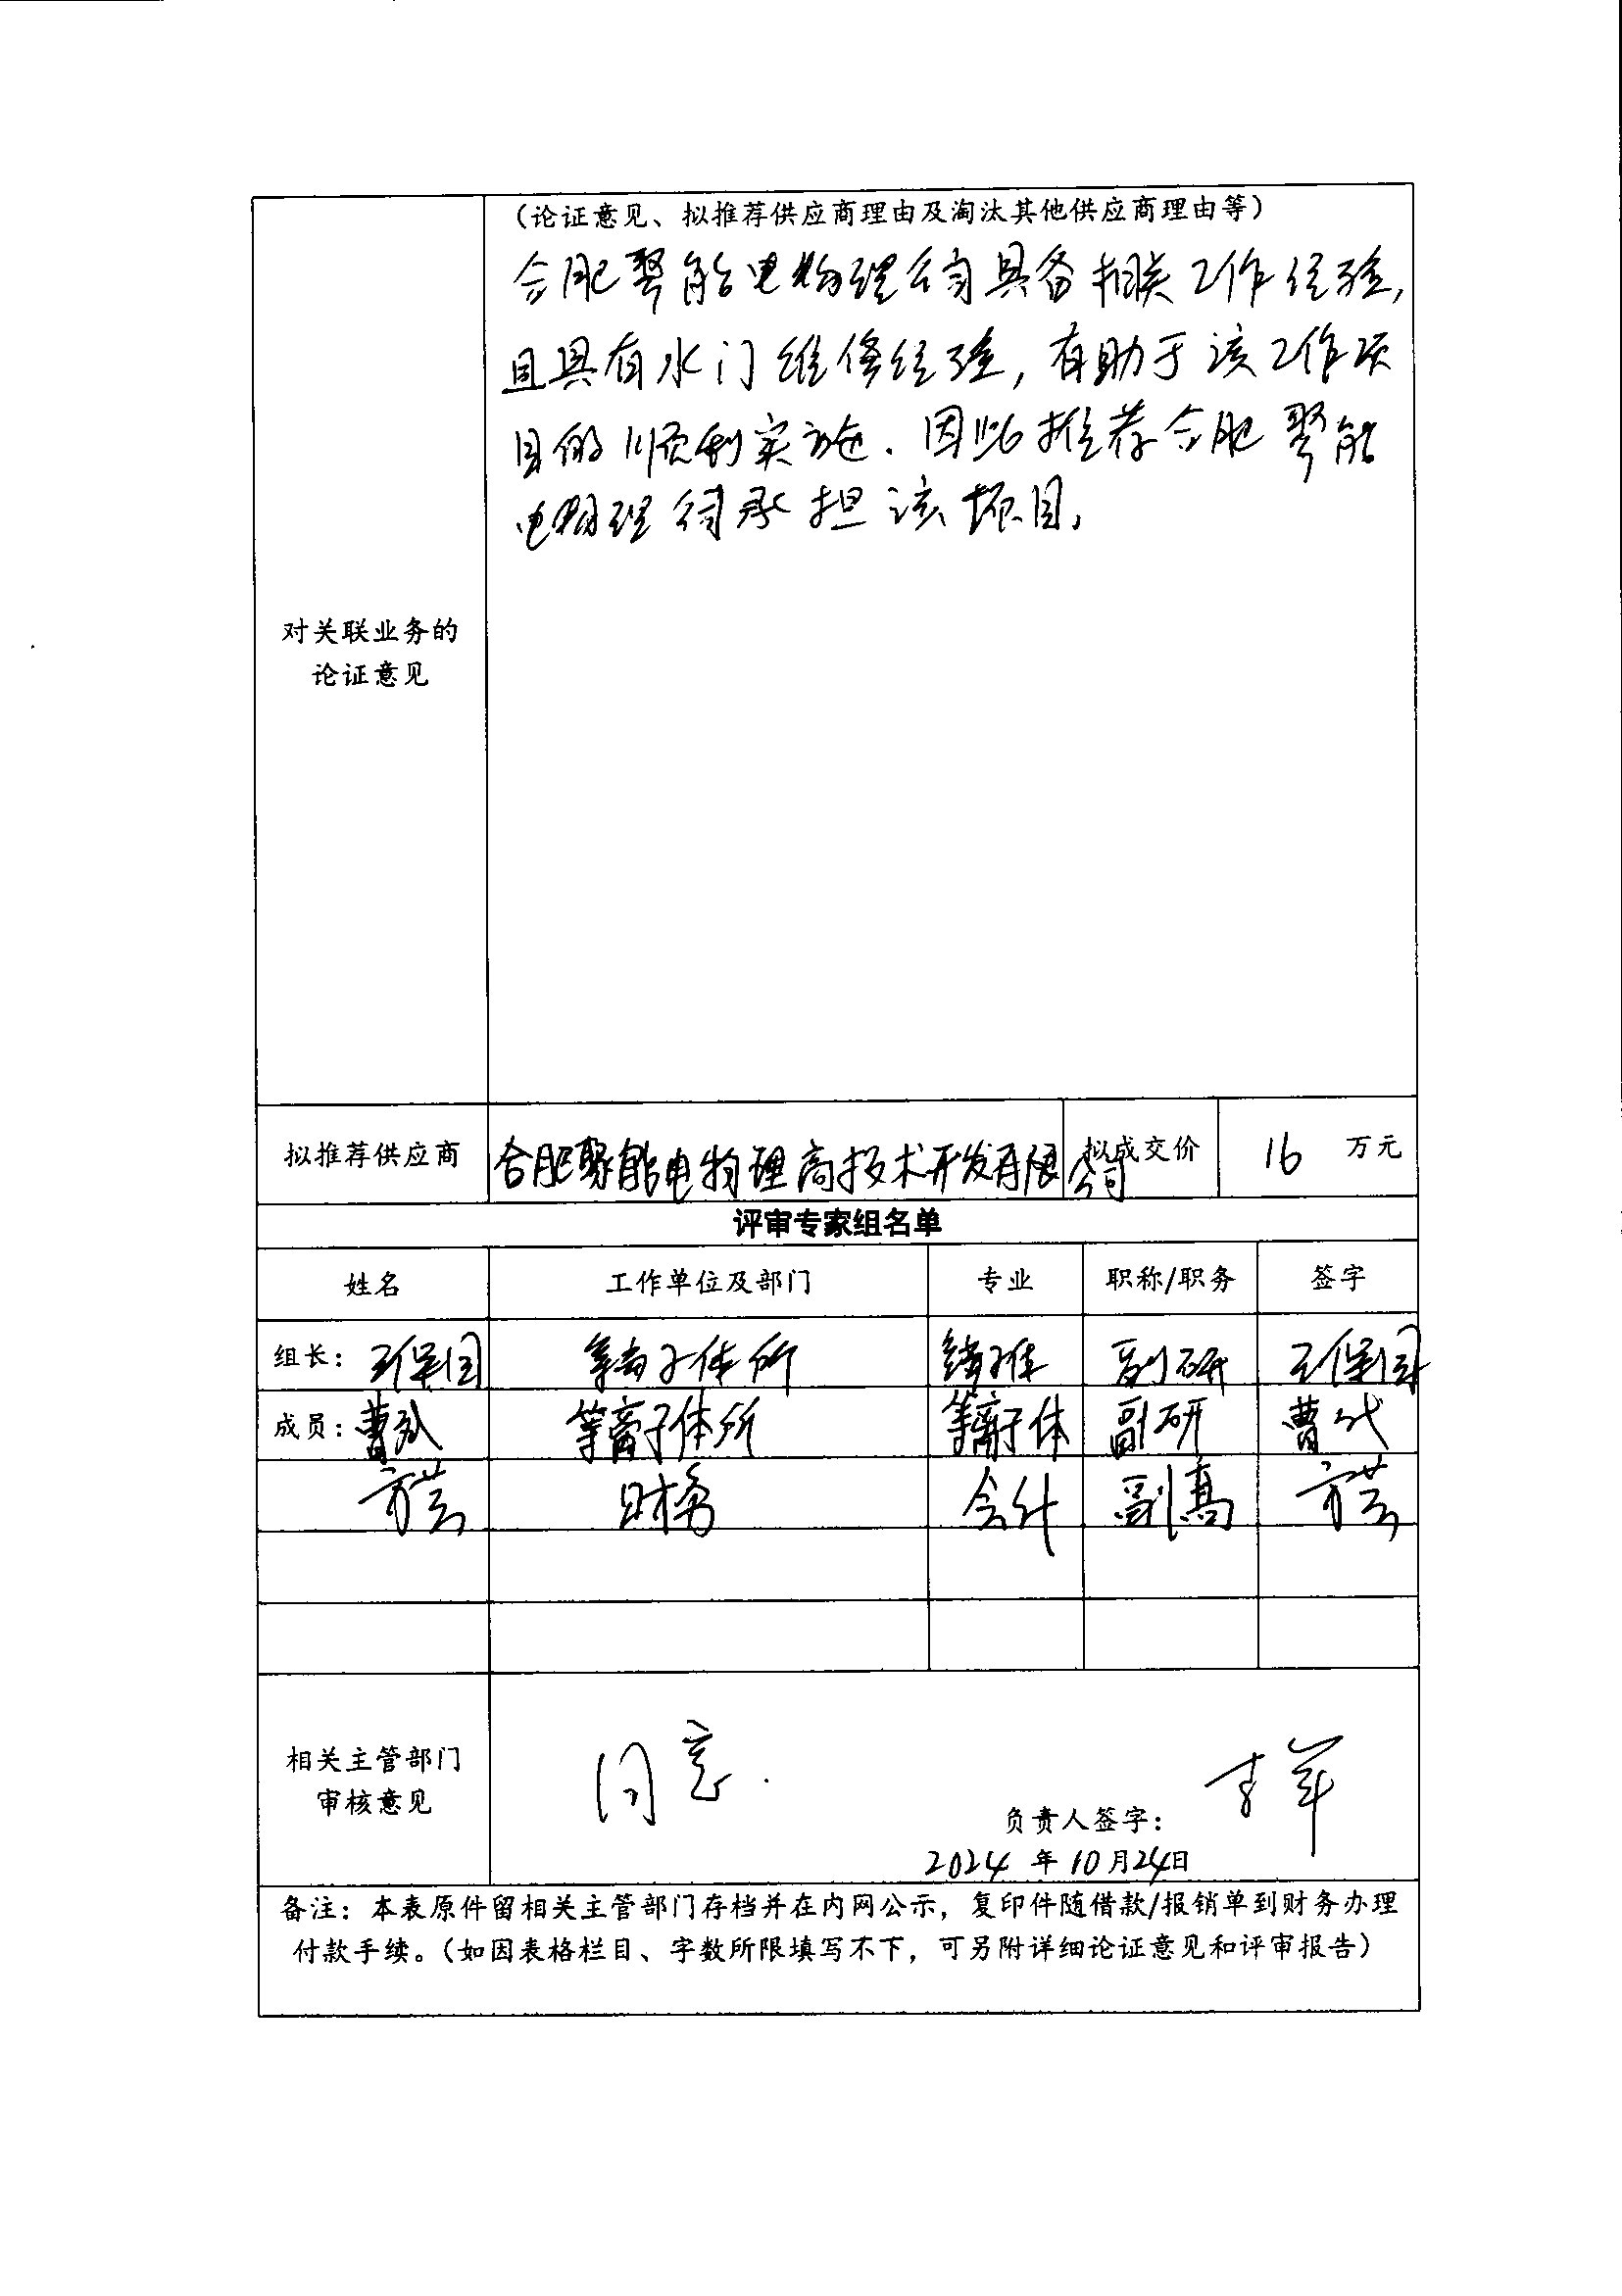 (论证意见、拟推荐供应商理由及淘汰其他供应商理由等)
合肥聚能电物理公司具备相关工作经验,
且具有水门维修经验,有助于该工作项
目的顺利实施.因此推荐合肥聚能
电物理公司承担该项目,
对关联业务的
论证意见
拟推荐供应商 合肥聚能电物理高技术开发有限公司 拟成交价 16 万元
评审专家组名单
姓名 工作单位及部门 专业 职称/职务 签字
组长: 王保国 等离子体所 等离子体 副研 王保国
成员: 曹 等离子体所 等离子体 副研 曹
方芸 财务 会计 副高 方芸
相关主管部门
审核意见
同意.
负责人签字: 李
2024 年 10 月 24 日
备注:本表原件留相关主管部门存档并在内网公示,复印件随借款/报销单到财务办理
付款手续。(如因表格栏目、字数所限填写不下,可另附详细论证意见和评审报告)